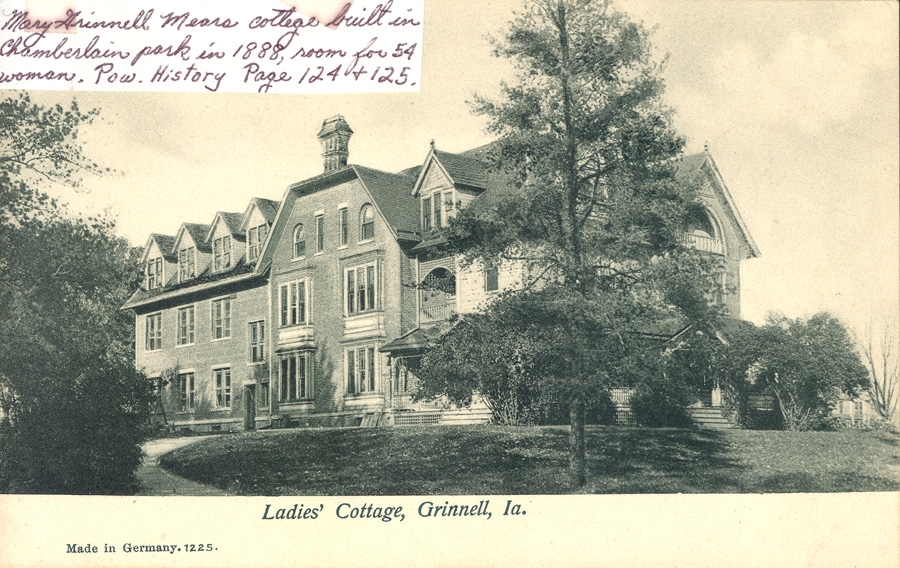 Mary Grinnell Mears cottege built in
Chamberlain park in 1888, room for 54
woman. Pow. History Page 124 + 125.
Ladies' Cottage, Grinnell, Ia.
Made in Germany. 1225.